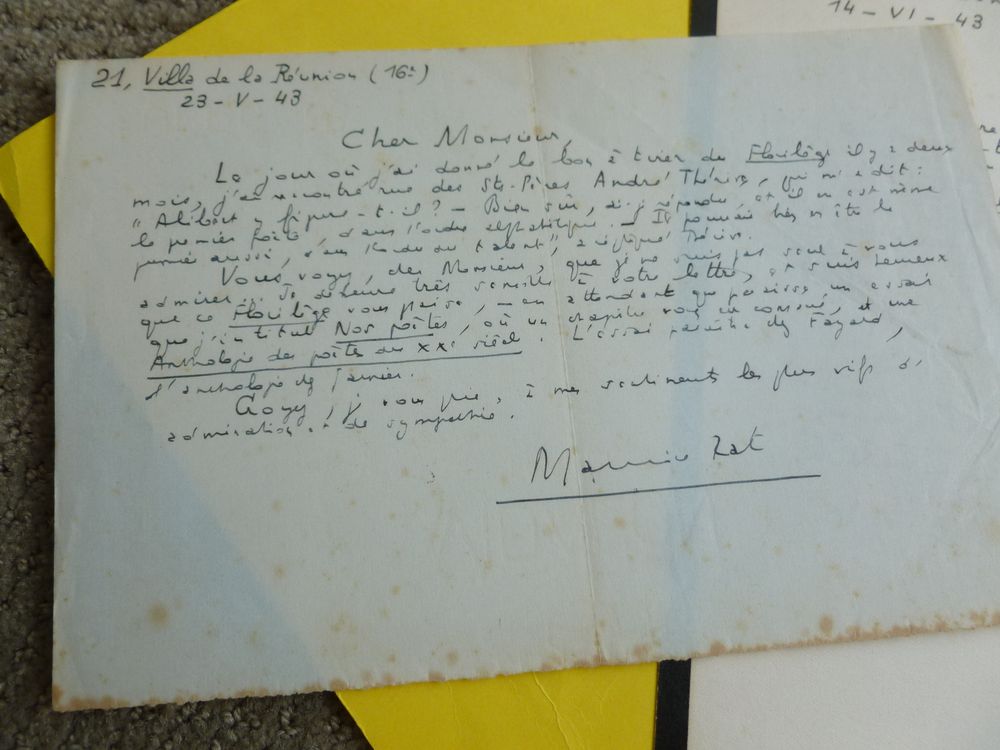 14 - VI - 43
21, Villa de la Réunion (16e)
23 - V - 43
Cher Monsieur,
Le jour où j'ai donné le bon à tirer du Florilège il y a deux
mois, j'ai rencontré rue des Sts-Pères André Thérive, qui m'a dit :
"Alibert y figure-t-il ? – Bien sûr, ai-je répondu, et il en est même
le premier poète, dans l'ordre alphabétique. – Il pourrait bien être le
premier aussi, dans l'ordre du talent", a répliqué Thérive.
Vous voyez, cher Monsieur, que je ne suis pas seul à vous
admirer. Je demeure très sensible à votre lettre, et suis heureux
que ce Florilège vous plaise, – en attendant que paraisse un essai
que j'intitule Nos poètes, où un chapitre vous est consacré, et une
Anthologie des poètes du XXe siècle. L'essai paraîtra chez Fayard,
l'anthologie chez Garnier.
Croyez, je vous prie, à mes sentiments les plus vifs d'
admiration et de sympathie.
Maurice Rat